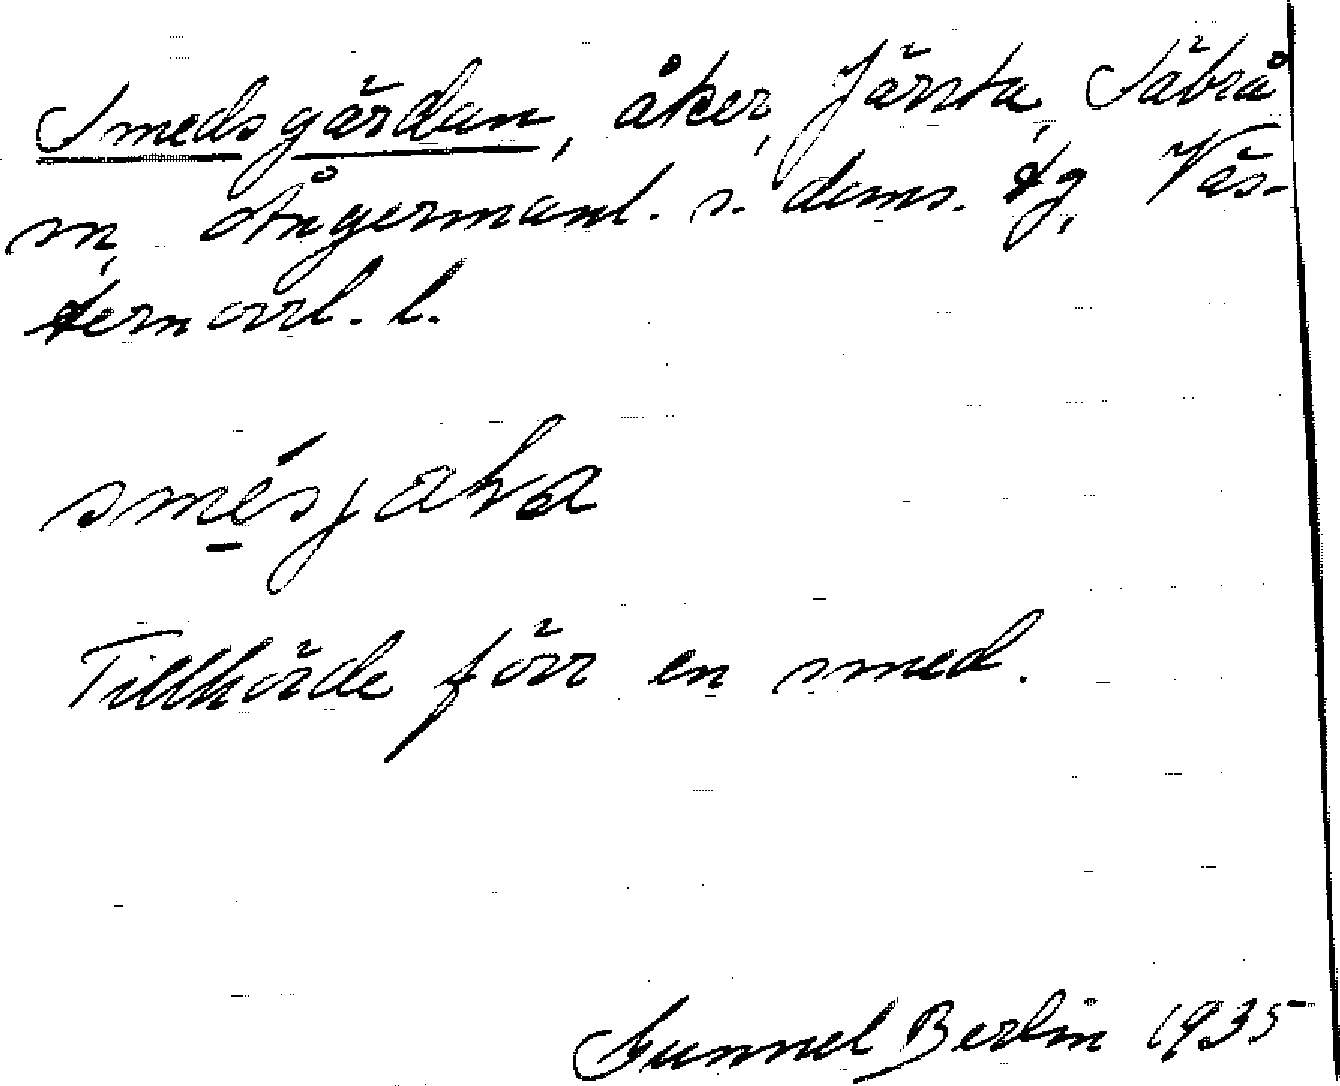 Smedsgärdan, åker, Järsta, Säbrå
sn, Ångermanl. s. doms. tg, Väs-
ternorrl. l.
Tillhörde förr en smed.
Gunnel Berlin 1935